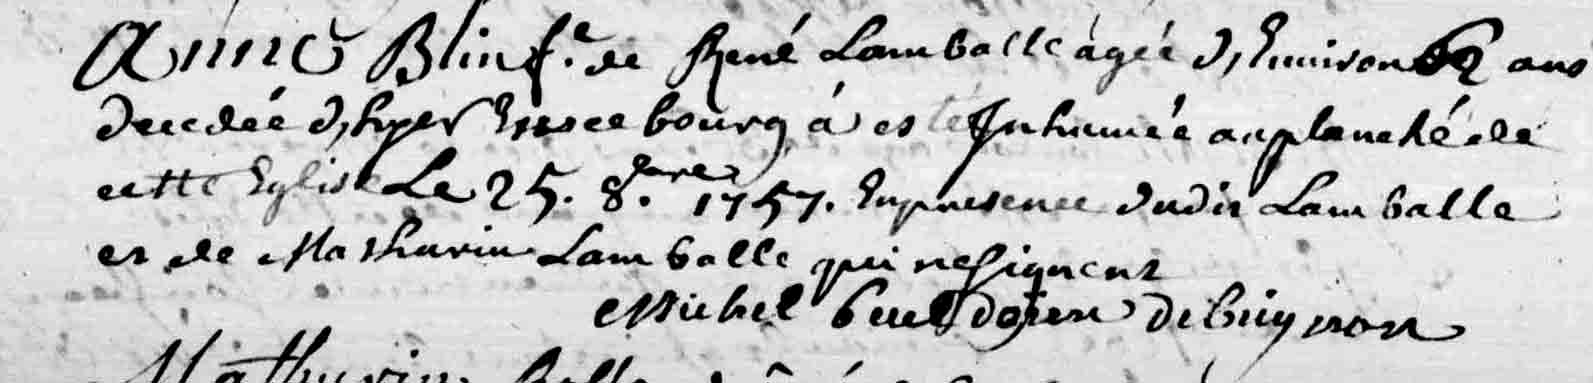 Anne Blin fe. de René Lamballe agée d'Environ 62 ans
decedée d'hyer En ce bourg à esté Inhumée au planché de
cette Eglise Le 25. 8bre 1757. En presence dudit Lamballe
et de Mathurin Lamballe qui ne signent
Michel doien de Guignon
Mathurin